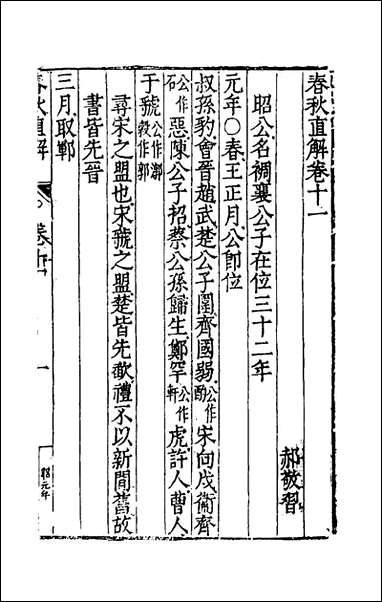 春秋直解卷十一
郝敬習
昭公名裯襄公子在位三十二年
元年○春王正月公卽位
叔孫豹會晉趙武楚公子圍齊國弱公作酌宋向戌衞齊
惡公作石惡陳公子招蔡公孫歸生鄭罕公作軒虎許人曹人
于虢公作漷穀作郭
尋宋之盟也宋虢之盟楚皆先歃禮不以新間舊故
書皆先晉
三月取鄆
春秋直解
卷十一
一
昭元年